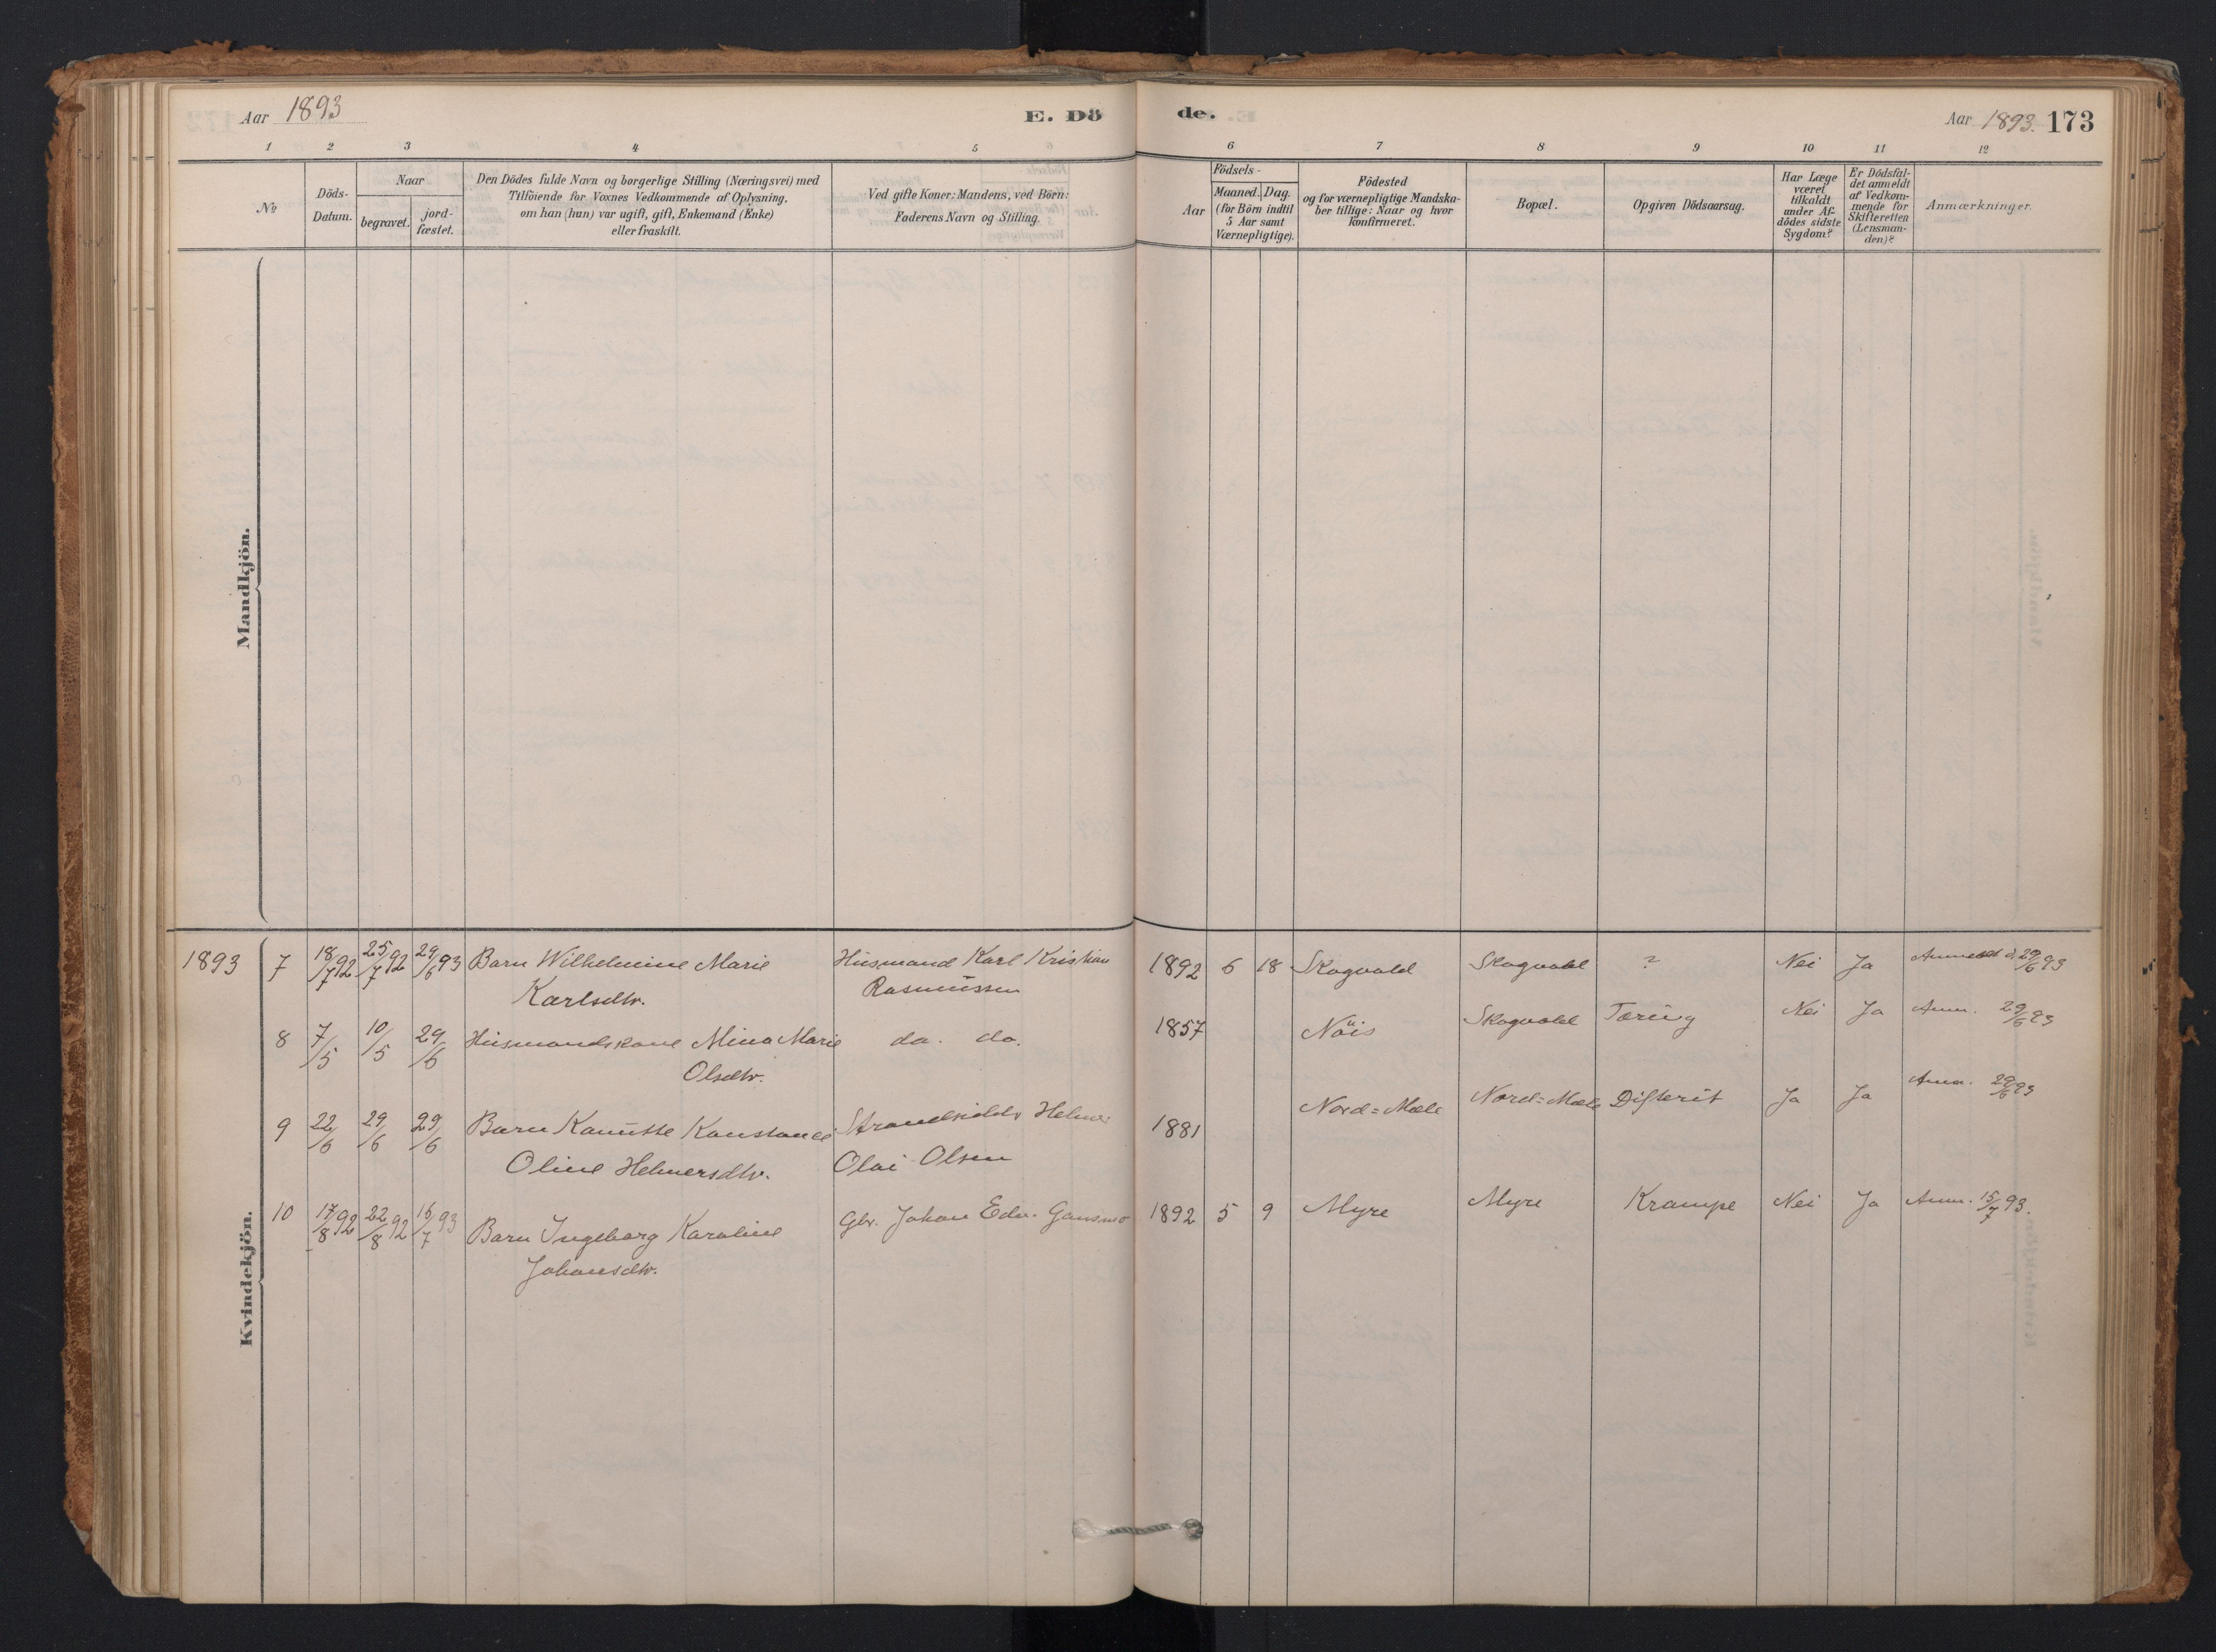 Aar 1893
E. Dö
de.
Aar 1893. 173
1 2 3 4 5 6 7 8 9 10 11 12
No
Döds-
Datum.
Naar
begravet.
jord-
fæstet.
Den Dödes fulde Navn og borgerlige Stilling (Næringsvei) med
Tilföiende for Voxnes Vedkommende af Oplysning,
om han (hun) var ugift, gift, Enkemand (Enke)
eller fraskilt.
Ved gifte Koner: Mandens, ved Börn:
Faderens Navn og Stilling.
Aar
Födsels-
Maaned. Dag.
(for Börn indtil
5 Aar samt
Værnepligtige).
Födested
og for værnepligtige Mandska-
ber tillige: Naar og hvor
konfirmeret.
Bopæl.
Opgiven Dödsaarsag.
Har Læge
været
tilkaldt
under Af-
dödes sidste
Sygdom?
Er Dödsfal-
det anmeldt
af Vedkom-
mende for
Skifteretten
(Lensman-
den)?
Anmærkninger.
Mandkjön.
Kvindekjön.
1893 7 18/7 92 25/7 92 29/6 93 Barn Wilhelmine Marie Husmand Karl Kristian 1892 6 18 Skogvold Skogvold ? Nei Ja 29/6 93
Karlsdtr. Rasmussen
8 7/5 10/5 29/6 Husmandskone Mina Marie do. do. 1857 Nöis Skogvold Tæring Nei Ja Anm. 29/6 93
Olsdtr.
9 22/6 29/6 29/6 Barn Kanutte Konstance Strandsidder Helmer 1881 Nord=Mele Nord=Mele Difterit Ja Ja Anm. 29/6 93
Oline Helmersdtr. Olai Olsen
10 17/8 92 22/8 92 16/7 93 Barn Ingeborg Karoline Gbr. Johan Edv. Gansmo 1892 5 9 Myre Myre Krampe Nei Ja Anm. 15/7 93.
Johansdtr.